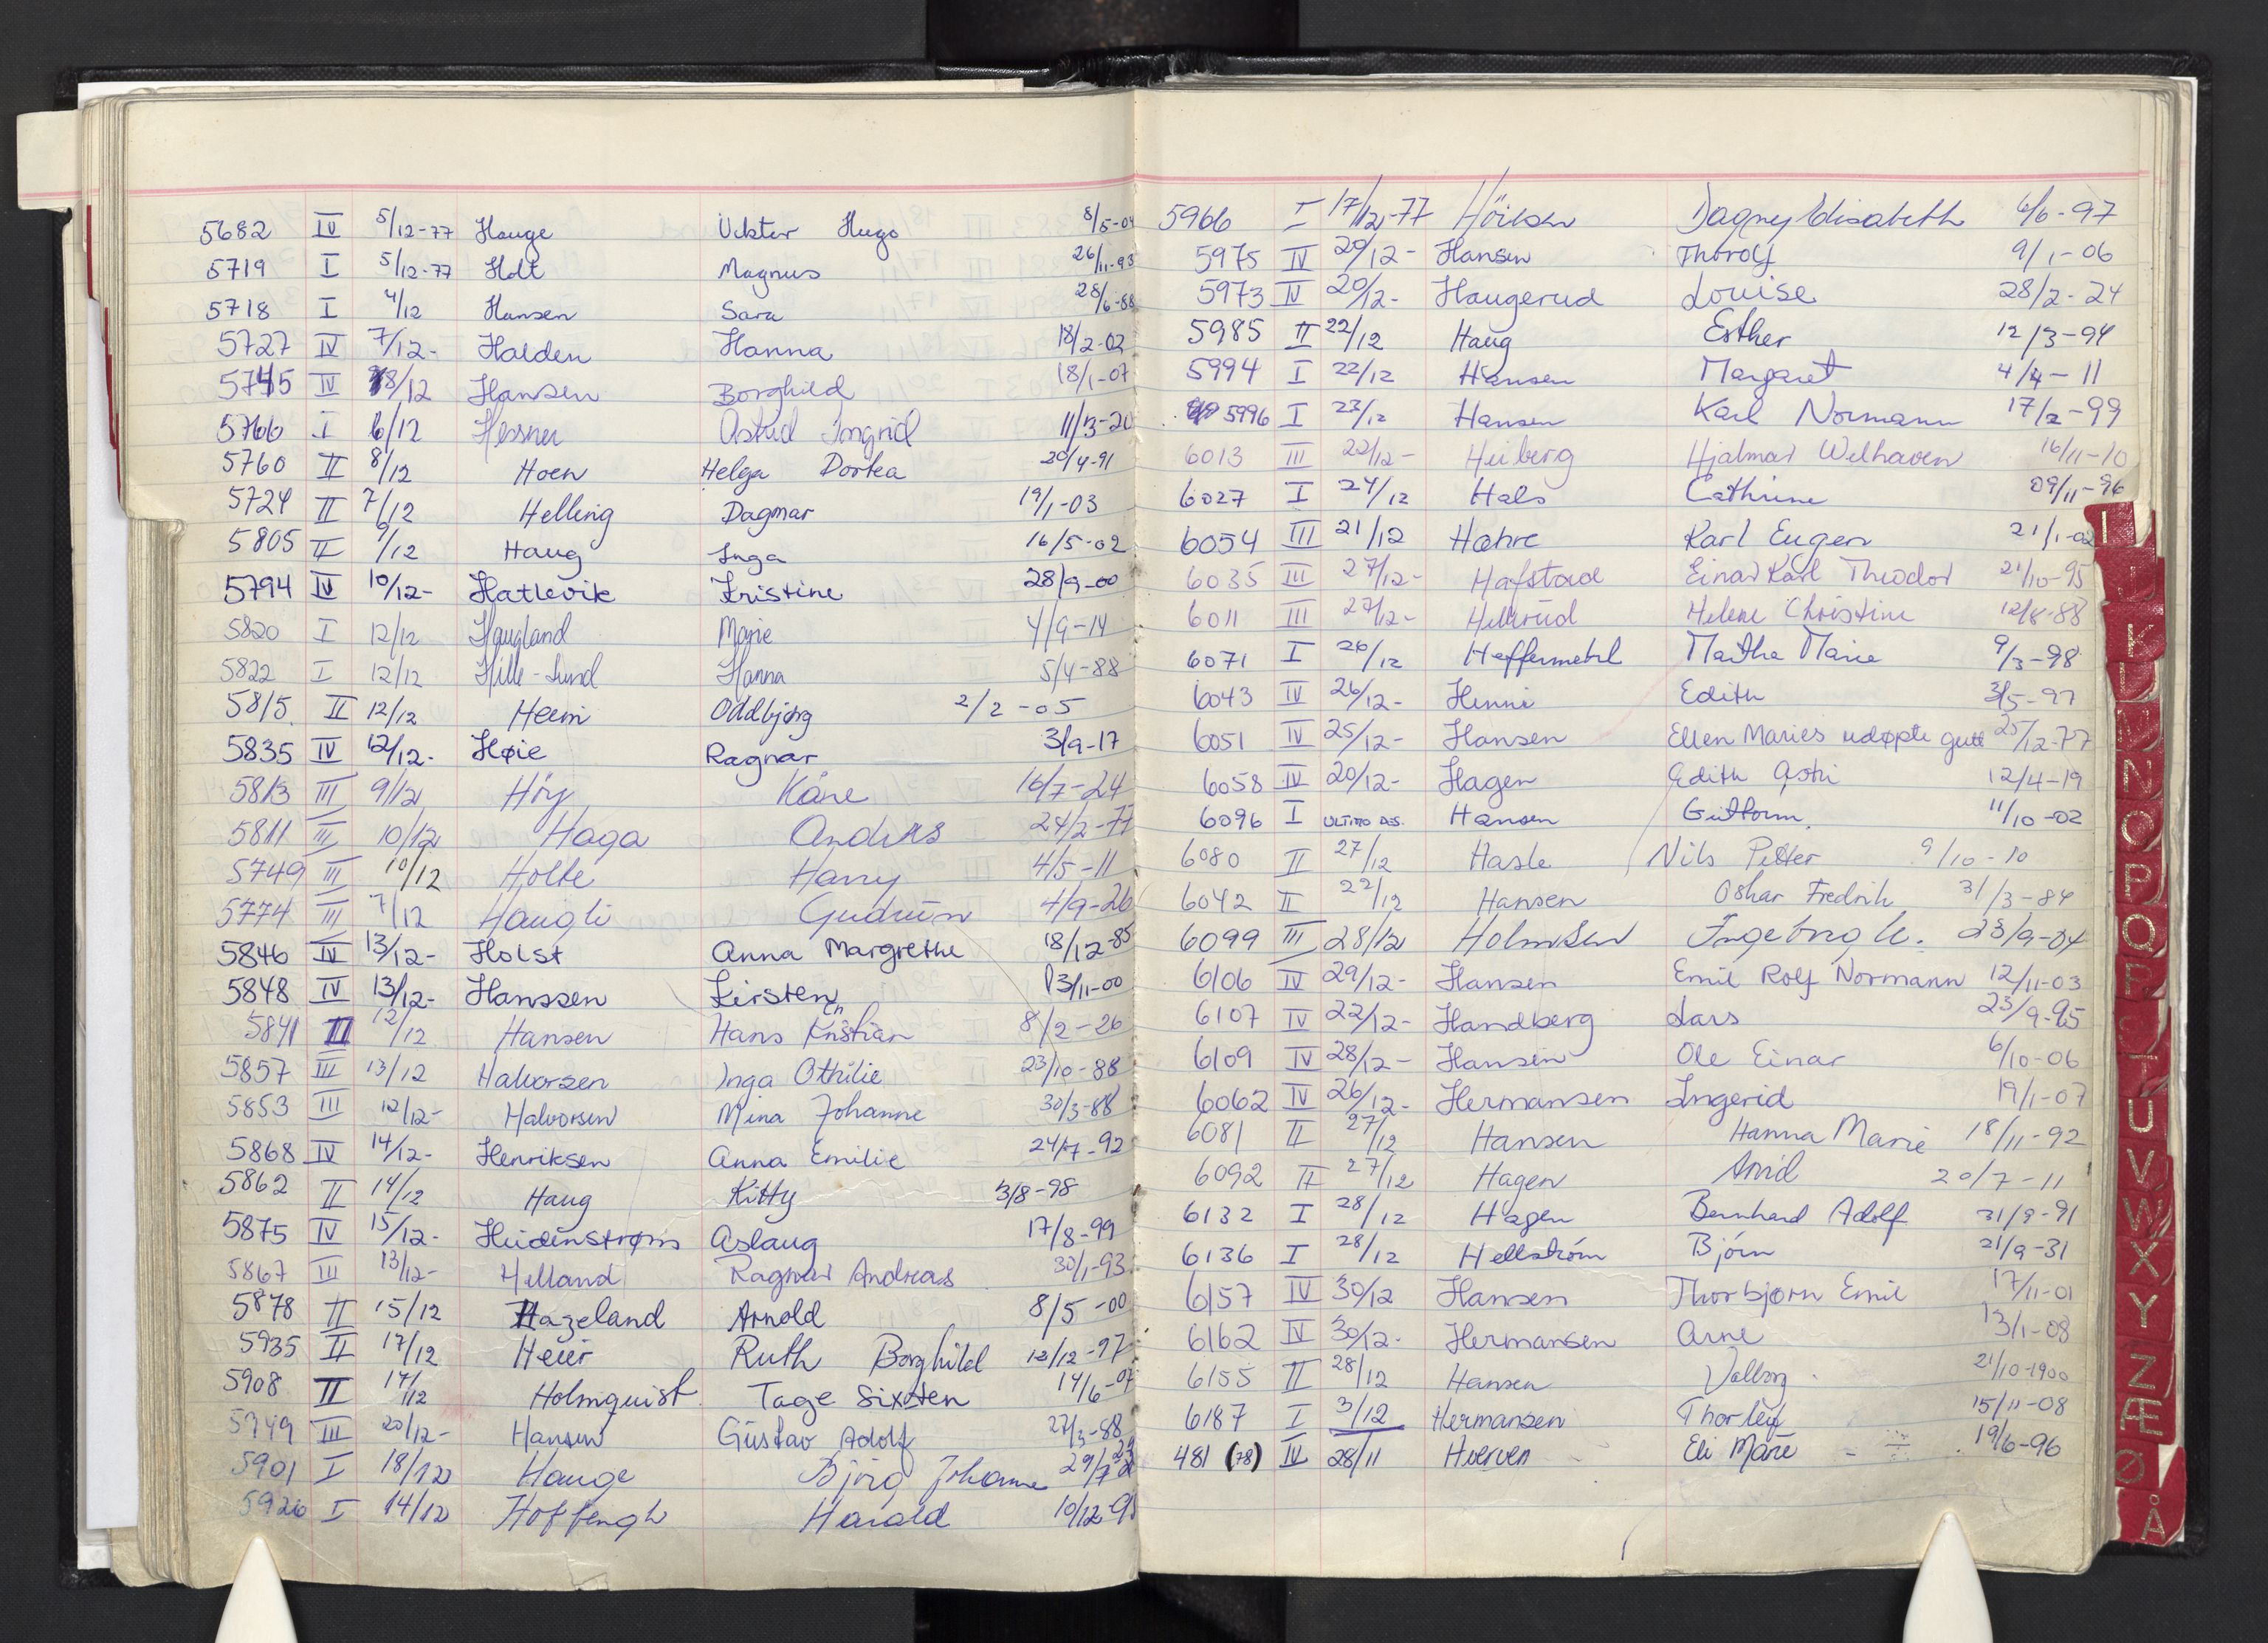 5682 IV 5/12-77 Hauge Viktor Hugo 8/5-04
5719 I 5/12-77 Holt Magnus 26/11-93
5718 I 4/12 Hansen Sara 28/6-88
5727 IV 7/12- Halden Hanna 18/2-02
5745 IV 8/12 Hansen Borghild 18/1-07
5766 I 6/12 Hessner Astrid Ingrid 11/3-20
5760 II 8/12 Hoen Helga Dortea 30/4-91
5724 II 7/12 Helling Dagmar 19/1-03
5805 II 9/12 Haug Inga 16/5-02
5794 IV 10/12- Hatlevik Kristine 28/9-00
5820 I 12/12 Haugland Marie 4/9-14
5822 I 12/12 Hille-Lund Hanna 5/4-88
5815 II 12/12 Heim Oddbjørg 2/2-05
5835 IV 12/12- Høie Ragnar 3/9-17
5813 III 9/12 Höy Kåre 16/7-24
5811 III 10/12 Haga Anders 24/2-77
5749 III 10/12 Holte Harry 4/5-11
5774 III 7/12 Haugli Gudrun 4/9-26
5846 IV 13/12- Holst Anna Margrethe 18/12-85
5848 IV 13/12- Hanssen Kirsten 13/11-00
5841 II 12/12 Hansen Hans Christian 8/2-26
5857 III 13/12 Halvorsen Inga Othilie 23/10-88
5853 III 12/12- Halvorsen Mina Johanne 30/3-88
5868 IV 14/12- Henriksen Anna Emilie 24/7-92
5862 II 14/12 Haug Kitty 3/8-98
5875 IV 15/12- Heidenstrøm Aslaug 17/8-99
5867 III 13/12- Helland Ragnar Andreas 30/1-93
5878 II 15/12 Hazeland Arnold 8/5-00
5935 II 17/12 Heier Ruth Borghild 12/12-97
5908 II 17/12 Holmquist Tage Sixten 14/6-07
5949 III 20/12- Hansen Gustav Adolf 27/3-88
5901 I 18/12 Hauge Bjørg Johanne 29/7
5926 I 14/12 Hoffengh Harald 10/12-98
5966 I 17/12-77 Höiksen Dagny Elisabeth 6/6-97
5975 IV 20/12- Hansen Thorolf 9/1-06
5973 IV 20/12- Haugerud Louise 28/2-24
5985 II 22/12 Haug Esther 12/3-94
5994 I 22/12 Hansen Margaret 4/4-11
5996 I 23/12 Hansen Karl Normann 17/2-99
6013 III 22/12- Heiberg Hjalmar Welhaven 16/11-10
6027 I 24/12 Hals Cathrine 09/11-96
6054 III 21/12 Hæhre Karl Eugen 21/1-02
6035 III 27/12- Hafstad Einar Karl Theodor 21/10-95
6011 III 27/12- Hellerud Helene Christine 12/8-88
6071 I 26/12 Heffermehl Martha Marie 9/3-98
6043 IV 26/12- Henni Edith 3/5-97
6051 IV 25/12- Hansen Ellen Maries udøpte gutt 25/12-77
6058 IV 20/12- Hagen Edith Astri 12/4-19
6096 I ULTIMO DES. Hansen Guttorm 11/10-02
6080 II 27/12 Hasle Nils Petter 9/10-10
6042 II 22/12 Hansen Oskar Fredrik 31/3-84
6099 III 28/12 Holmsen Ingeborg K. 23/9-04
6106 IV 29/12- Hansen Emil Rolf Normann 12/11-03
6107 IV 22/12- Handberg Lars 23/9-95
6109 IV 28/12- Hansen Ole Einar 6/10-06
6062 IV 26/12- Hermansen Ingerid 19/1-07
6081 II 27/12 Hansen Hanna Marie 18/11-92
6092 II 27/12 Hagen Arvid 20/7-11
6132 I 28/12 Hagen Bernhard Adolf 31/9-91
6136 I 28/12 Hellström Björn 21/9-31
6157 IV 30/12 Hansen Thorbjørn Emil 17/11-01
6162 IV 30/12- Hermansen Arne 13/1-08
6155 II 28/12 Hansen Valborg 21/10-1900
6187 I 3/12 Hermansen Thorleif 15/11-08
481 (78) IV 28/11 Hverven Eli Marie 19/6-96
I
K
L
N
O
P
Q
R
S
T
U
V
W
X
Y
Z
Æ
Ø
Å